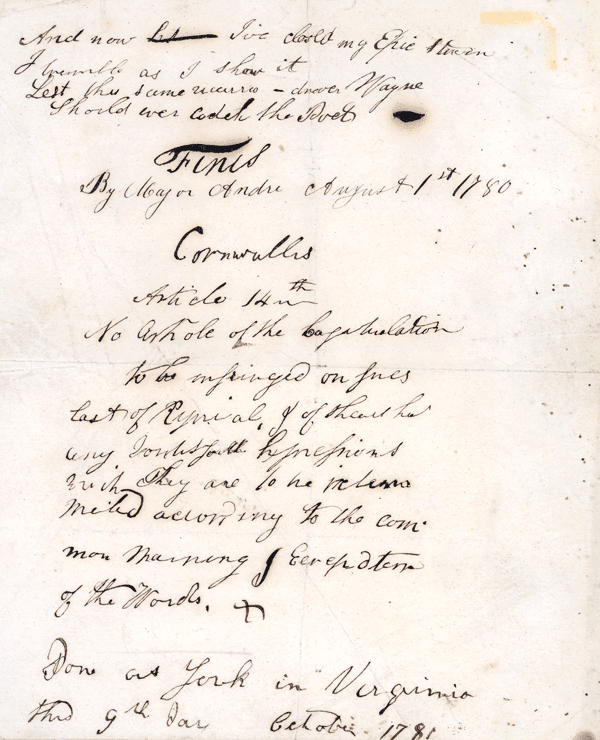 And now I've closd my Epic Strain
I tremble as I show it
Lest this same warrio - drover Wayne
Should ever catch the Poet
Finis
By Major Andre August 1st 1780
Cornwallis
Article 14th
No Article of the Capatulation
to be infringed on
last of Reprisal, & if there be
any Doubtfull Expressions
They are to be
according to the com
mon Maening &
of the Words. +
Done at York in Virginia
this 9th Day October 1781